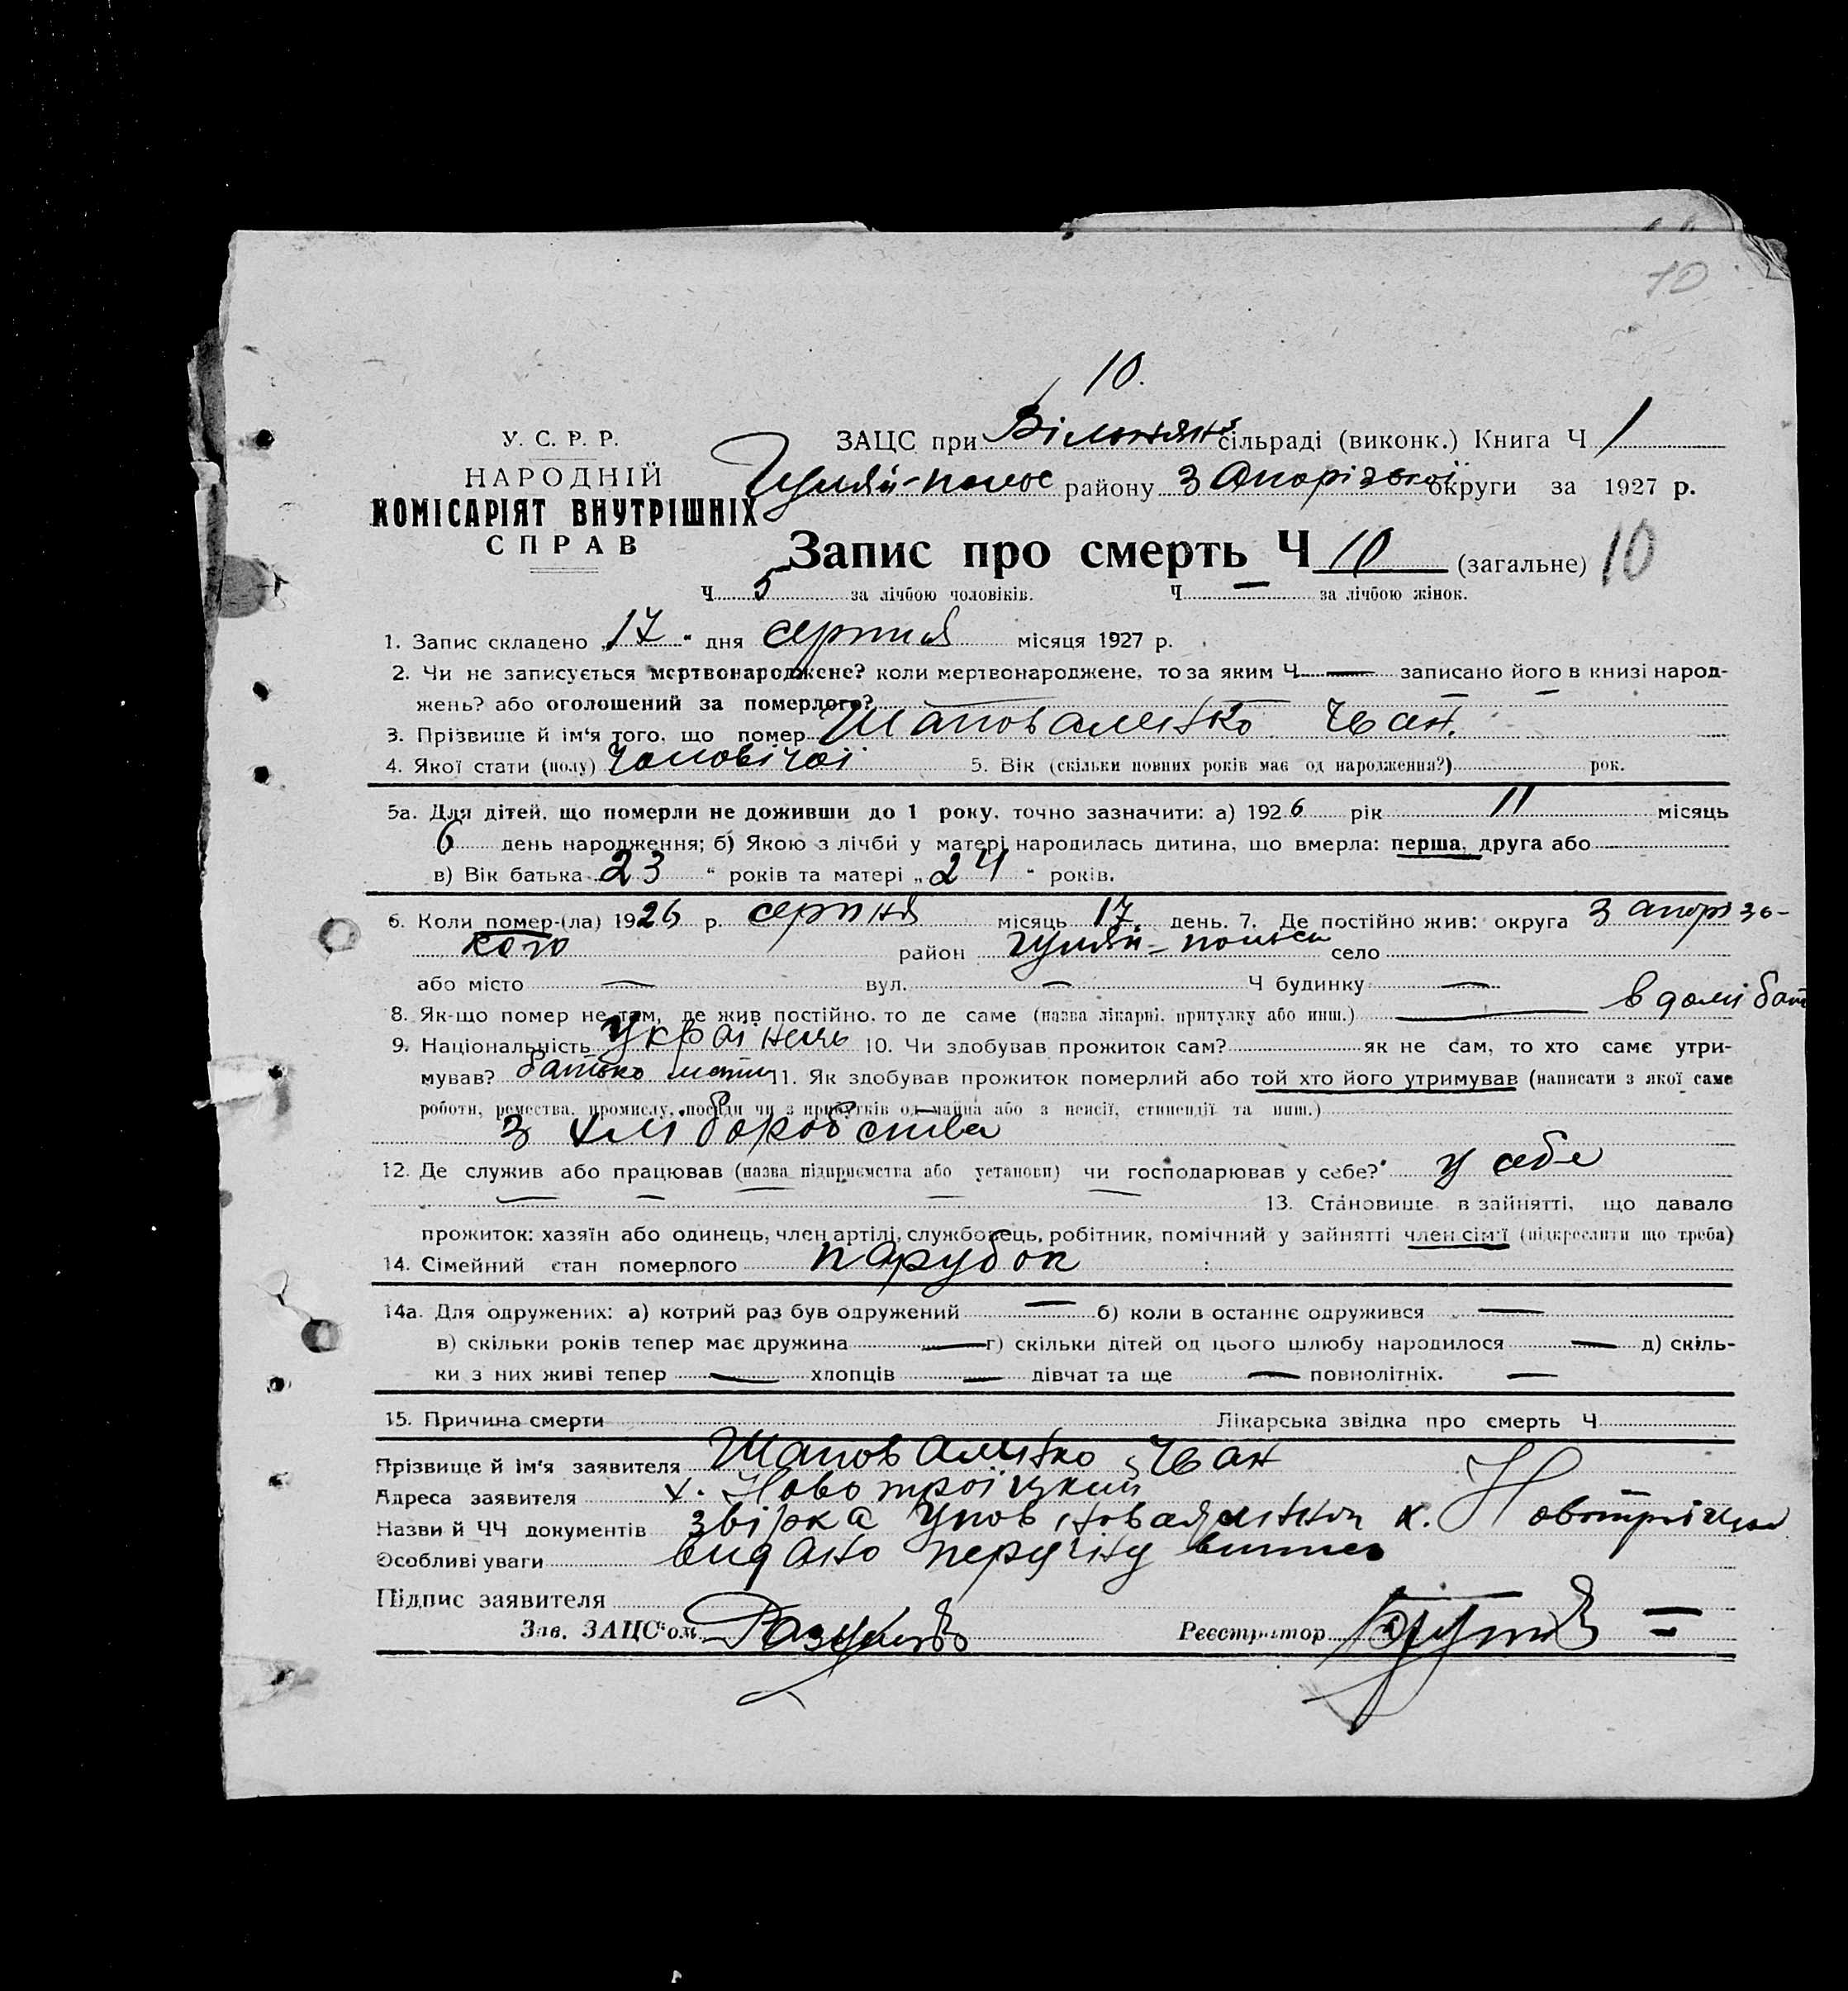 10
10.
У. С. Р. Р.
НАРОДНІЙ
КОМІСАРІЯТ ВНУТРІШНІХ
СПРАВ
ЗАЦС при Вільнян сільраді (виконк.) Книга Ч 1
Гуляй-полює району Запорізької округи за 1927 р.
Запис про смерть Ч 10 (загальне) 10
Ч 5 за лічбою чоловіків. Ч — за лічбою жінок.
1. Запис складено „17“ дня серпня місяця 1927 р.
2. Чи не записується мертвонароджене? коли мертвонароджене, то за яким Ч — записано його в книзі народ-
жень? або оголошений за померлого? —
3. Прізвище й ім'я того, що помер Шаповаленко Іван.
4. Якої стати (полу) Чоловічої 5. Вік (скільки повних років має од народження?) рок.
5а. Для дітей, що померли не доживши до 1 року, точно зазначити: а) 1926 рік 11 місяць
6 день народження; б) Якою з лічби у матері народилась дитина, що вмерла: перша, друга або
в) Вік батька 23 “ років та матері „24“ років.
6. Коли помер-(ла) 1926 р. серпня місяць 17 день. 7. Де постійно жив: округа Запорізь-
кого район Гуляй-польськ село
або місто — вул. — Ч будинку —
8. Як-що помер не там, де жив постійно, то де саме (назва лікарні, притулку або инш.) — в домі бат
9. Національність Українець 10. Чи здобував прожиток сам? як не сам, то хто саме утри-
мував? батько мати 11. Як здобував прожиток померлий або той хто його утримував (написати з якої саме
роботи, ремества, промислу, посади чи з прибутків од майна або з пенсії, стипендії та инш.)
з хліборобства
12. Де служив або працював (назва підприємства або установи) чи господарював у себе? у себе
— — — — — 13. Становище в зайнятті, що давало
прожиток: хазяїн або одинець, член артілі, службовець, робітник, помічний у зайнятті член сім'ї (підкреслити що треба)
14. Сімейний стан померлого парубок
14а. Для одружених: а) котрий раз був одружений — б) коли в останнє одружився —
в) скільки років тепер має дружина — г) скільки дітей од цього шлюбу народилося — д) скіль-
ки з них живі тепер — хлопців — дівчат та ще — повнолітніх. —
15. Причина смерти Лікарська звідка про смерть Ч
Прізвище й ім'я заявителя Шаповаленко Іван
Адреса заявителя х. Новотроїцкий
Назви й ЧЧ документів звірка Упов х.
Особливі уваги видано
Підпис заявителя
Зав. ЗАЦС'ом Реєстратор